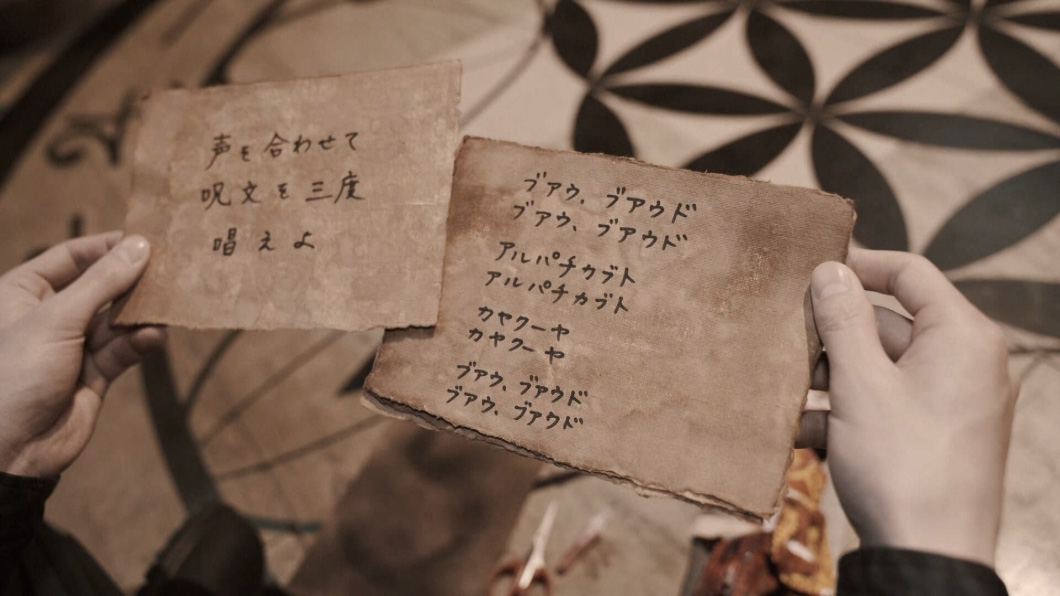 声を合わせて
呪文を三度
唱えよ
ブアウ、ブアウド
ブアウ、ブアウド
アルパチカブト
アルパチカブト
カヤクーヤ
カヤクーヤ
ブアウ、ブアウド
ブアウ、ブアウド